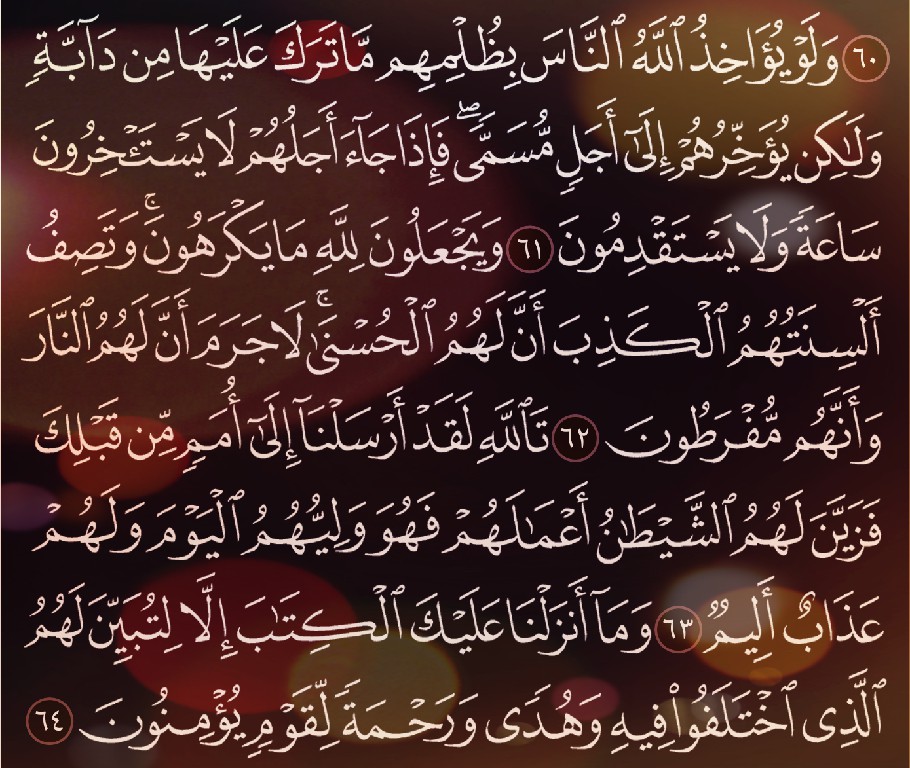 ٦٠ وَلَوْ يُؤَاخِذُ ٱللَّهُ ٱلنَّاسَ بِظُلْمِهِم مَّا تَرَكَ عَلَيْهَا مِن دَآبَّةٍ
وَلَـٰكِن يُؤَخِّرُهُمْ إِلَىٰٓ أَجَلٍ مُّسَمًّى ۖ فَإِذَا جَآءَ أَجَلُهُمْ لَا يَسْتَـْٔخِرُونَ
سَاعَةً وَلَا يَسْتَقْدِمُونَ ٦١ وَيَجْعَلُونَ لِلَّهِ مَا يَكْرَهُونَ ۚ وَتَصِفُ
أَلْسِنَتُهُمُ ٱلْكَذِبَ أَنَّ لَهُمُ ٱلْحُسْنَىٰ ۚ لَا جَرَمَ أَنَّ لَهُمُ ٱلنَّارَ
وَأَنَّهُم مُّفْرَطُونَ ٦٢ تَٱللَّهِ لَقَدْ أَرْسَلْنَآ إِلَىٰٓ أُمَمٍ مِّن قَبْلِكَ
فَزَيَّنَ لَهُمُ ٱلشَّيْطَـٰنُ أَعْمَـٰلَهُمْ فَهُوَ وَلِيُّهُمُ ٱلْيَوْمَ وَلَهُمْ
عَذَابٌ أَلِيمٌ ٦٣ وَمَآ أَنزَلْنَا عَلَيْكَ ٱلْكِتَـٰبَ إِلَّا لِتُبَيِّنَ لَهُمُ
ٱلَّذِى ٱخْتَلَفُوا۟ فِيهِ وَهُدًى وَرَحْمَةً لِّقَوْمٍ يُؤْمِنُونَ ٦٤